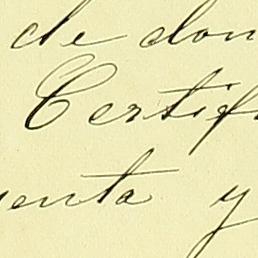 de don
Certif
enta y